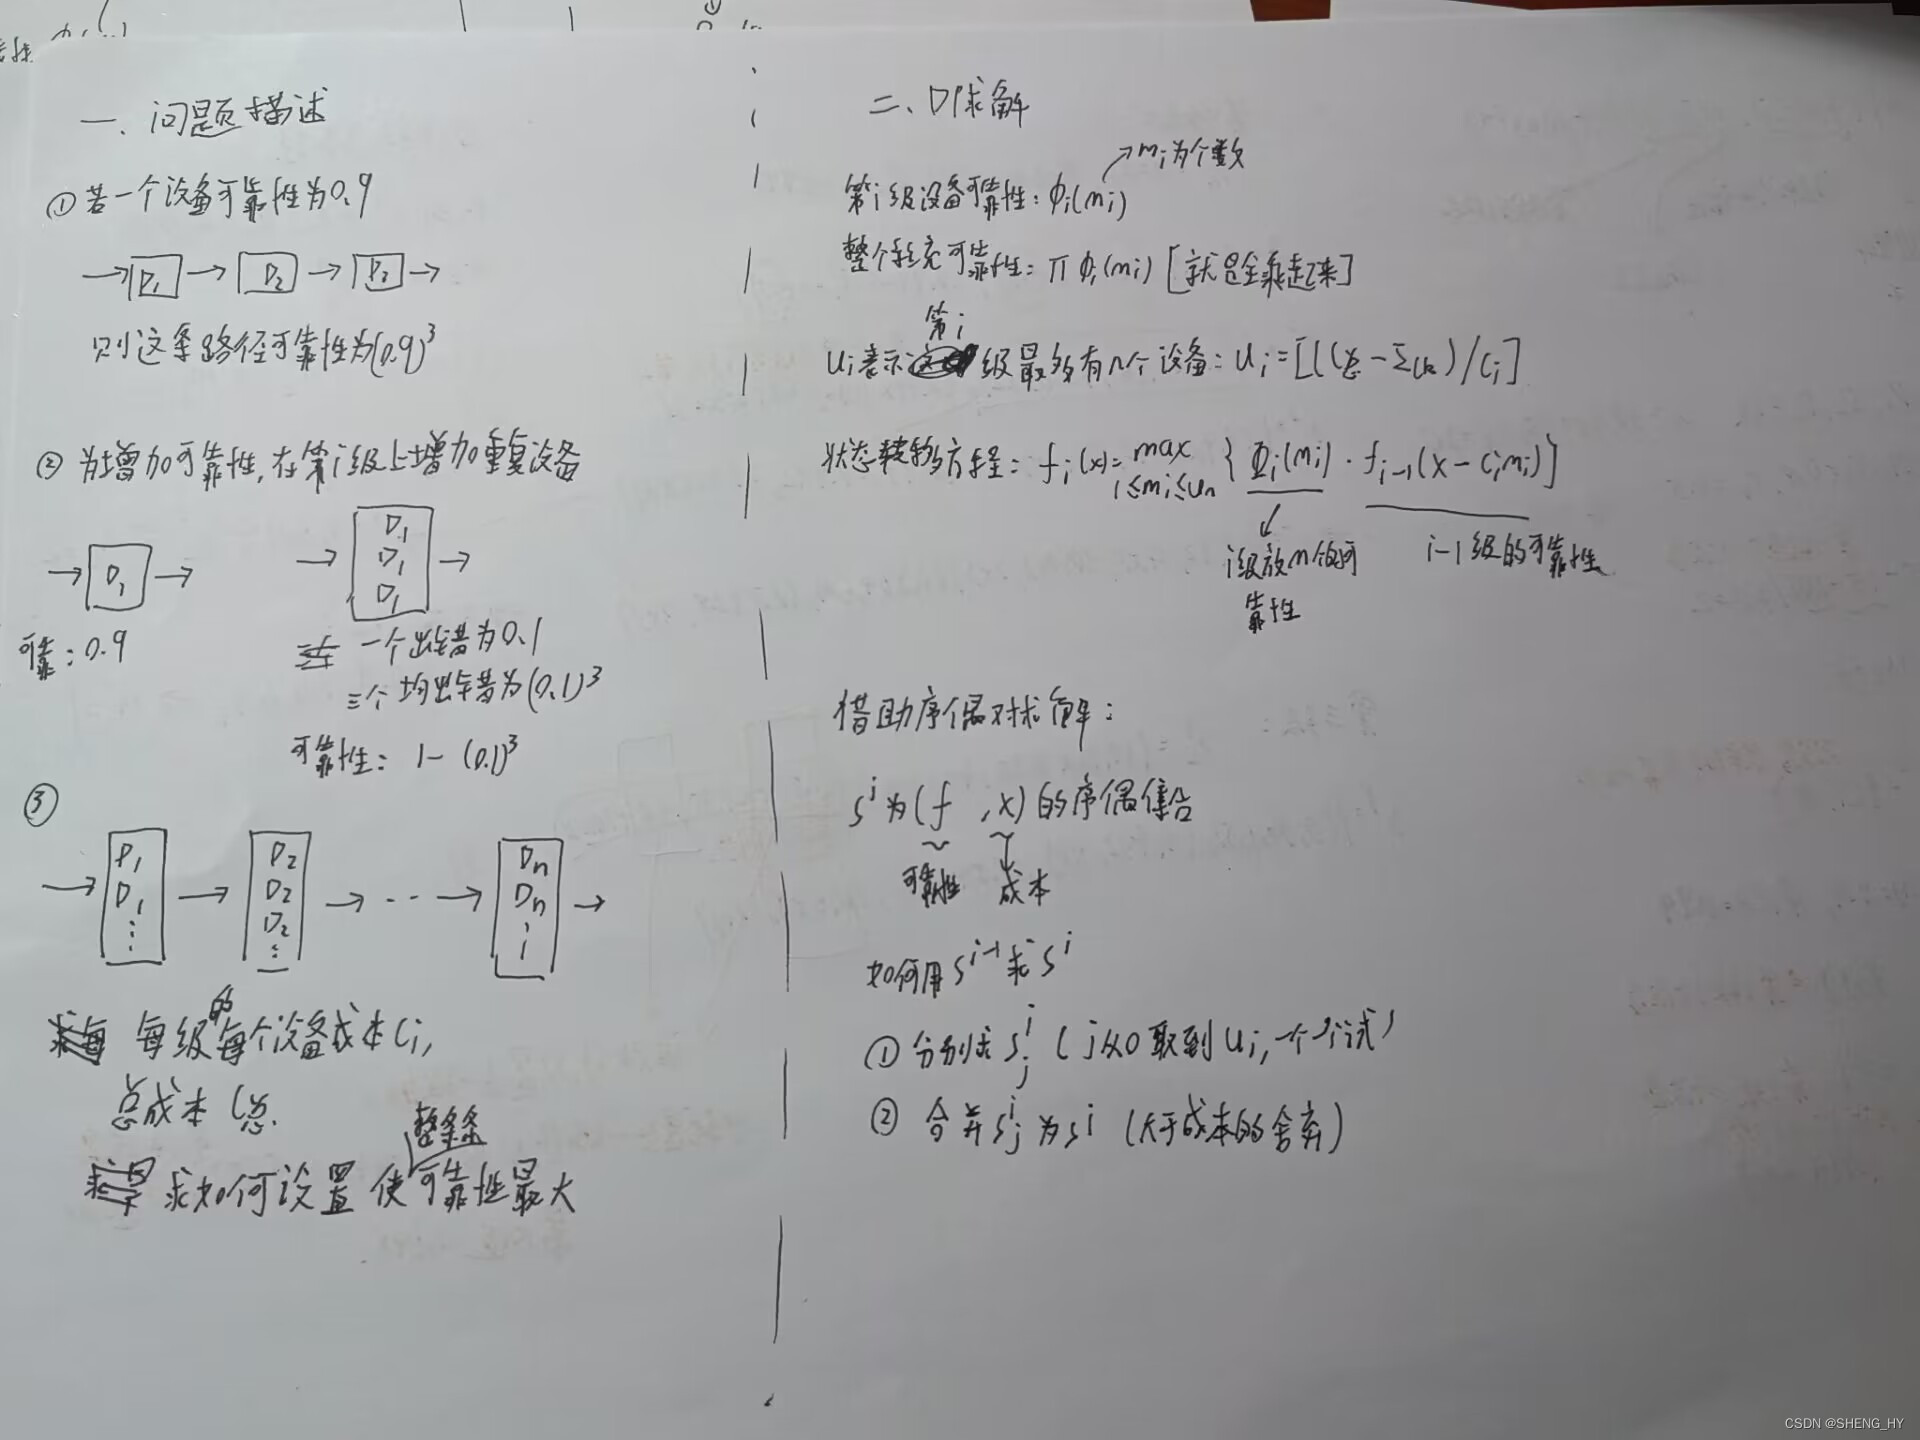 一、问题描述
① 若一个设备可靠性为0.9
→ D₁ → D₂ → D₃ →
则这条路径可靠性为(0.9)³
② 为增加可靠性,在第i级上增加重复设备
→ D₁ →
可靠:0.9
→ D₁ D₁ D₁ →
一个出错为0.1
三个均出错为(0.1)³
可靠性: 1-(0.1)³
③
→ D₁ D₁ ⋮ → D₂ D₂ D₂ ⋮ → ‥ → Dn Dn ⋮ →
每级的每个设备成本Ci,
总成本C总.
求如何设置 使整条可靠性最大
二、DP求解
第i级设备可靠性: ϕi(mi) ↗mi为个数
整个系统可靠性: Π ϕi(mi) [就是全乘起来]
Ui表示第i级最多有几个设备: Ui=[(C总-ΣCk)/Ci]
状态转移方程: fi(x)= max { Φi(mi) · fi-1(x-Cimi)}
1≤mi≤un
i级放m个的可
靠性
i-1级的可靠性
借助序偶对求解:
Sⁱ为(f ,x)的序偶集合
可靠性 成本
如何用Sⁱ⁻¹求Sⁱ
① 分别求Sⁱj (j从0取到Ui,一个个试)
② 合并Sⁱj为Sⁱ (大于成本的舍弃)
CSDN @SHENG_HY